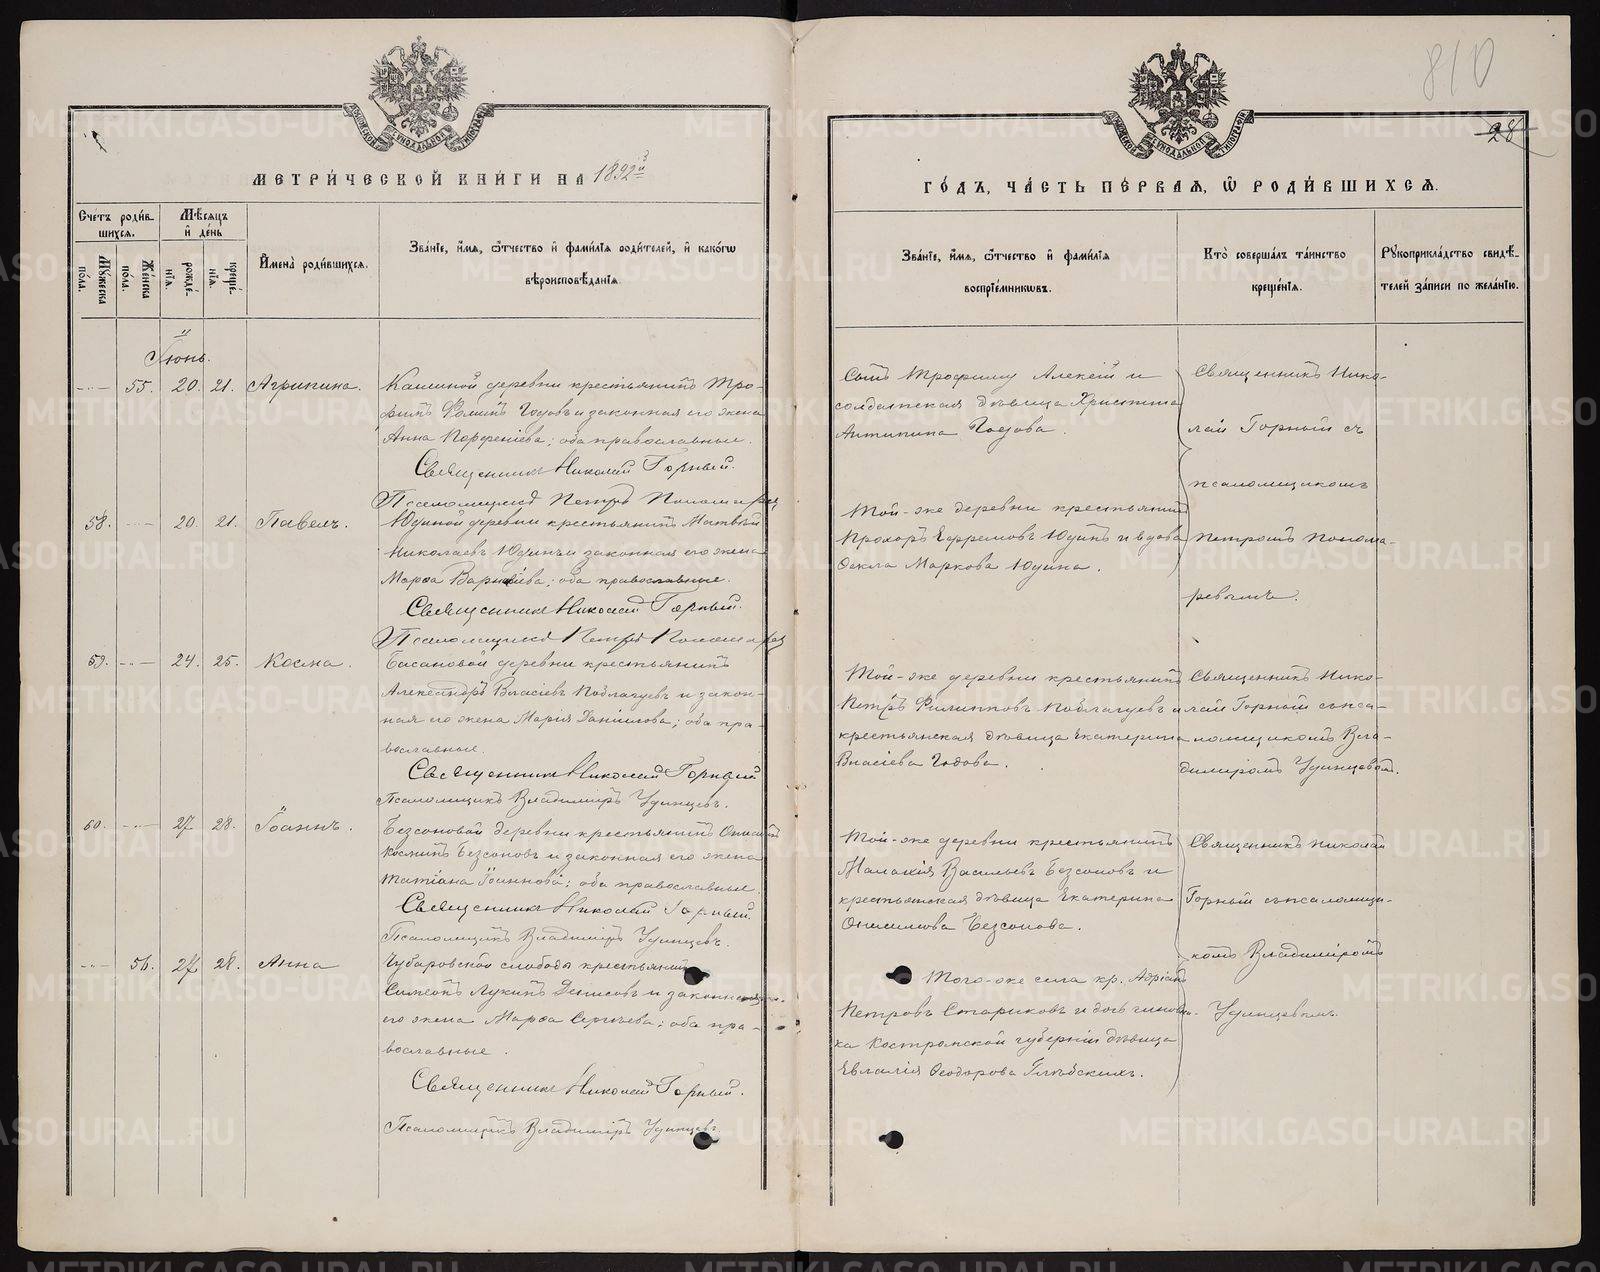 810
28
МЕТРИ́ЧЕСКОЙ КНИ́ГИ НА 1892 й
ГО́ДЪ, ЧА́СТЬ ПЕ́РВАЯ, Ѡ РОДИ́ВШИХСЯ.
Сче́тъ роди́вшихся.
Му́жеска по́ла.
Же́нска по́ла.
Мѣ́сяцъ и де́нь
рожде́нїя.
креще́нїя.
И҆мена̀ роди́вшихся.
Зва́нїе, и҆́мя, ѻ҆́тчество и҆ фами́лїя роди́телей, и҆ како́гѡ
вѣроисповѣ́данїя.
Зва́нїе, и҆́мя, ѻ҆́тчество и҆ фами́лїя
воспрїе́мникѡвъ.
Кто̀ соверша́лъ та́инство
креще́нїя.
Рꙋкоприкла́дство свидѣ́-
телей за́писи по жела́нїю.
Іюнь.
55. 20. 21. Агрипина.
деревни крестьянинъ Тро-
фимъ Годовъ и законная его жена
Анна Парфеніева; оба православные.
Священникъ Николай Горный.
Псаломщикъ Петръ Пономарев
Сынъ Трофиму Алексій и
солдатская дѣвица Христина
Антипина Годова.
Священникъ Нико-
лай Горный съ
псаломщикомъ
58. 20. 21. Павелъ.
Юдиной деревни крестьянинъ Матвѣй
Николаевъ Юдинъ и законная его жена
Марѳа; оба православные.
Священникъ Николай Горный.
Псаломщикъ Петръ Пономарев
Той-же деревни крестьянинъ
Прохоръ Ефремовъ Юдинъ и вдова
Ѳекла Маркова Юдина.
Петромъ Понома-
ревымъ.
59. 24. 25. Косма.
деревни крестьянинъ
Александръ Власіевъ и закон-
ная его жена Марія Даніилова; оба пра-
вославные.
Священникъ Николай Горный
Псаломщикъ Владиміръ Удинцевъ.
Той-же деревни крестьянинъ
Петръ Филипповъ и
крестьянская дѣвица Екатерина
Власіева Годова.
Священникъ Нико-
лай Горный съ пса-
ломщикомъ Вла-
диміромъ Удинцевым.
60. 27. 28. Іоаннъ.
Безсоновой деревни крестьянинъ
Косминъ Безсоновъ и законная его жена
Татіана Іоаннова; оба православные.
Священникъ Николай Горный.
Псаломщикъ Владиміръ Удинцевъ.
Той-же деревни крестьянинъ
Малахія Васильевъ Безсоновъ и
крестьянская дѣвица Екатерина
Онисимова Безсонова.
Священникъ Николай
Горный съ псаломщи-
комъ Владиміромъ
56. 27. 28. Анна
Чубаровской слободы крестьянинъ
Симеонъ Лукинъ Денисовъ и законная
его жена Марѳа Сергѣева; оба пра-
вославные.
Священникъ Николай Горный.
Псаломщикъ Владиміръ Удинцевъ.
Того-же села кр. Адріанъ
Петровъ Стариковъ и дочь чиновни-
ка Костромской губерніи дѣвица
Евлалія Ѳеодорова Глѣбскихъ.
Удинцевымъ.
METRIKI.GASO-URAL.RU